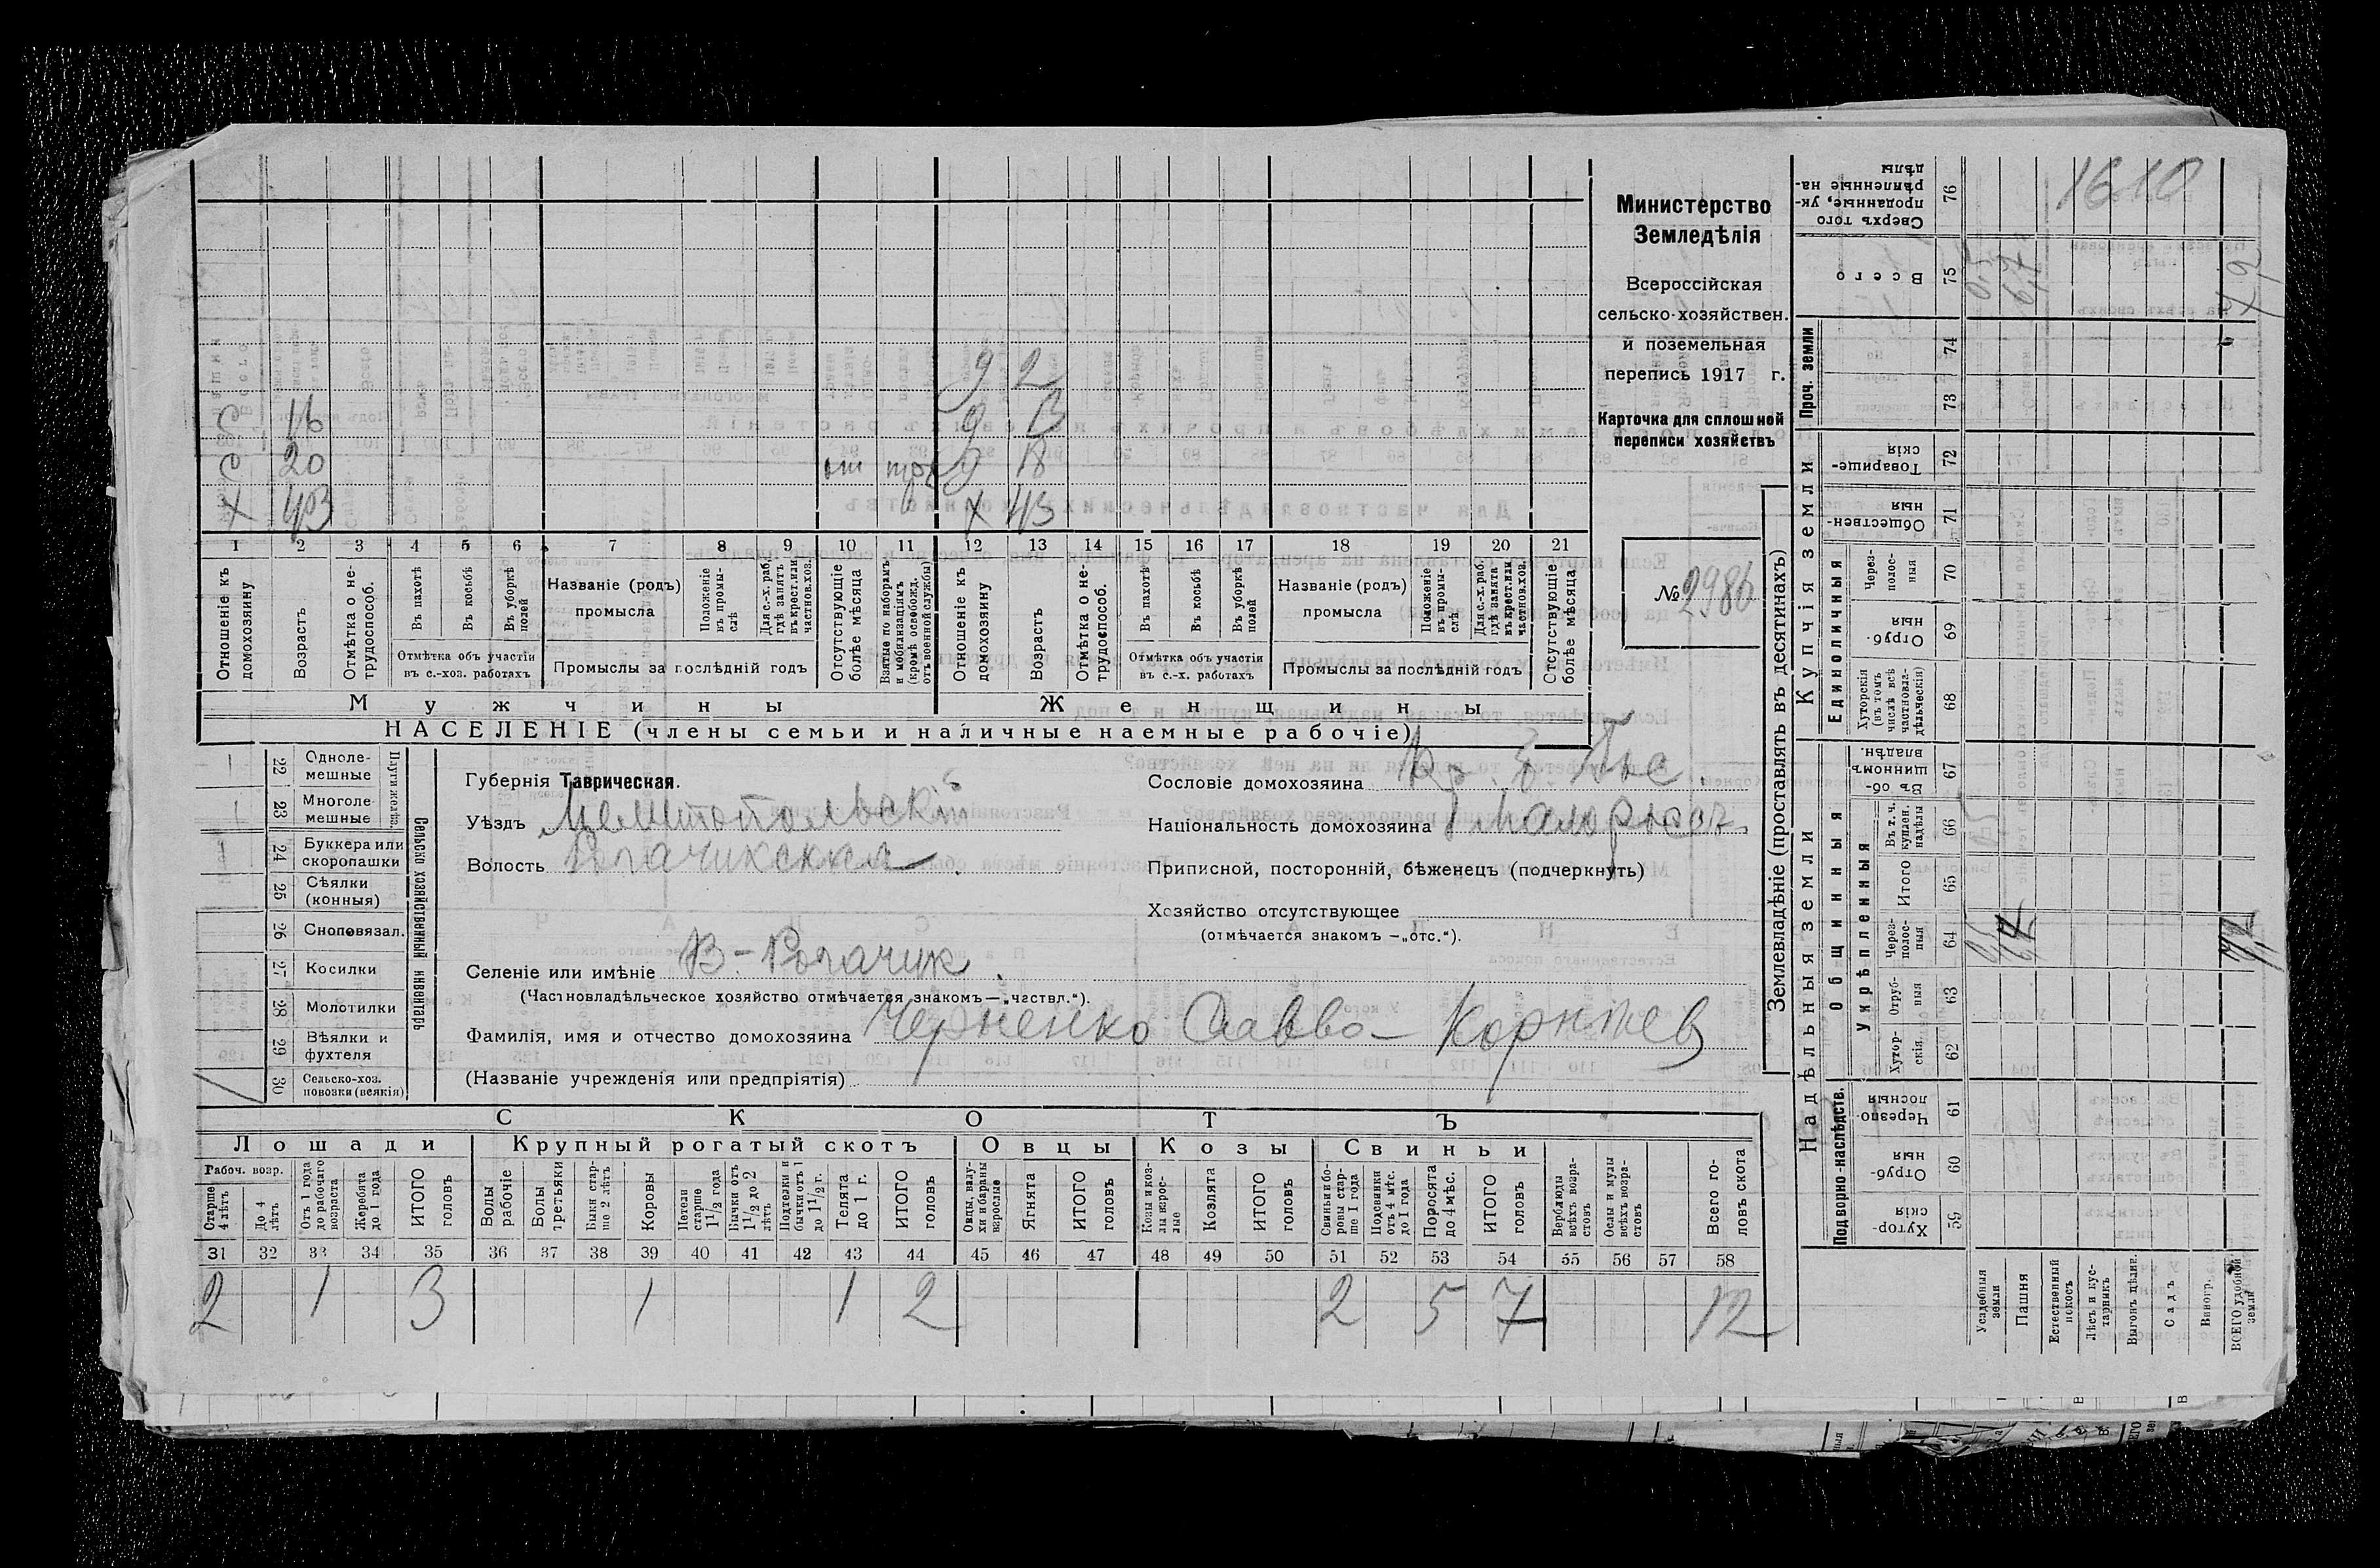 Министерство
Земледѣлія
Всероссійская
сельско-хозяйствен.
и поземельная
перепись 1917 г.
Карточка для сплошной
переписи хозяйствъ
№ 2986
9 2
С 16 9 13
С 20 9 18
Х 43 Х 43
1 2 3 4 5 6 7 8 9 10 11 12 13 14 15 16 17 18 19 20 21
Отношеніе къ домохозяину
Возрастъ
Отмѣтка о не-трудоспособ.
Въ пахотѣ
Въ косьбѣ
Въ уборкѣ полей
Отмѣтка объ участіи въ с.-хоз. работахъ
Названіе (родъ) промысла
Положеніе въ промы-слѣ
Для с.-х. раб. гдѣ занятъ въ крест. или частнов. хоз.
Промыслы за послѣдній годъ
Отсутствующіе болѣе мѣсяца
Взятые по наборамъ и мобилизаціямъ (кромѣ освобожд. отъ военной службы)
Отношеніе къ домохозяину
Возрастъ
Отмѣтка о не-трудоспособ.
Въ пахотѣ
Въ косьбѣ
Въ уборкѣ полей
Отмѣтка объ участіи въ с.-х. работахъ
Названіе (родъ) промысла
Положеніе въ промы-слѣ
Для с.-х. раб. гдѣ занята въ крест. или частнов. хоз.
Промыслы за послѣдній годъ
Отсутствующіе болѣе мѣсяца
Мужчины Женщины
НАСЕЛЕНІЕ (члены семьи и наличные наемные рабочіе)
22 Одноле-мешные
23 Многоле-мешные
Плуги желѣз.
24 Буккера или скоропашки
25 Сѣялки (конныя)
26 Сноповязал.
27 Косилки
28 Молотилки
29 Вѣялки и фухтеля
30 Сельско-хоз. повозки (всякія)
Сельско хозяйственный инвентарь
Губернія Таврическая.
Уѣздъ Мелитопольскій
Волость Рогачикская
Селеніе или имѣніе В-Рогачик.
(Частновладѣльческое хозяйство отмѣчается знакомъ — „частвл.“).
Фамилія, имя и отчество домохозяина Черненко Савва Корнѣев
(Названіе учрежденія или предпріятія)
Сословіе домохозяина
Національность домохозяина малоросс
Приписной, посторонній, бѣженецъ (подчеркнуть)
Хозяйство отсутствующее
(отмѣчается знакомъ — „отс.“).
СКОТЪ
Лошади Крупный рогатый скотъ Овцы Козы Свиньи
Рабоч. возр.
Старше 4 лѣтъ
До 4 лѣтъ
Отъ 1 года до рабочаго возраста
Жеребята до 1 года
ИТОГО головъ
Волы рабочіе
Волы третьяки
Быки стар-ше 2 лѣтъ
Коровы
Нетели старше 1½ года
Бычки отъ 1½ до 2 лѣтъ
Подтелки и бычки отъ 1 до 1½ г.
Телята до 1 г.
ИТОГО головъ
Овцы, валу-хи и бараны взрослые
Ягнята
ИТОГО головъ
Козы и коз-лы взрос-лые
Козлята
ИТОГО головъ
Свиньи и бо-ровы стар-ше 1 года
Подсвинки отъ 4 мѣс. до 1 года
Поросята до 4 мѣс.
ИТОГО головъ
Верблюды всѣхъ возра-стовъ
Ослы и мулы всѣхъ возра-стовъ
Всего го-ловъ скота
31 32 33 34 35 36 37 38 39 40 41 42 43 44 45 46 47 48 49 50 51 52 53 54 55 56 57 58
2 1 3 1 1 2 2 5 7 12
Землевладѣніе (проставлять въ десятинахъ)
Надѣльныя земли Купчія земли Проч. земли
Подворно-наслѣдств.
Общинныя
Укрѣпленныя
Единоличныя
Хутор-скія 59
Отруб-ныя 60
Черезпо-лосныя 61
Хутор-скія. 62
Отруб-ныя 63
Черес-полос-ныя 64
Итого 65
Въ т. ч. куплен. надѣлы 66
Въ об-щинномъ владѣн. 67
Хуторскія (въ томъ числѣ всѣ частновла-дѣльческія) 68
Отруб-ныя 69
Через-полос-ныя 70
Обществен-ныя 71
Товарище-скія 72
73
74
Всего 75
Сверхъ того проданные, ук-рѣпленные на-дѣлы 76
Усадебныя земли
Пашня
Естественный покосъ
Лѣсъ и кус-тарникъ
Выгонъ цѣлин.
Садъ
Виногр.
ВСЕГО удобной земли